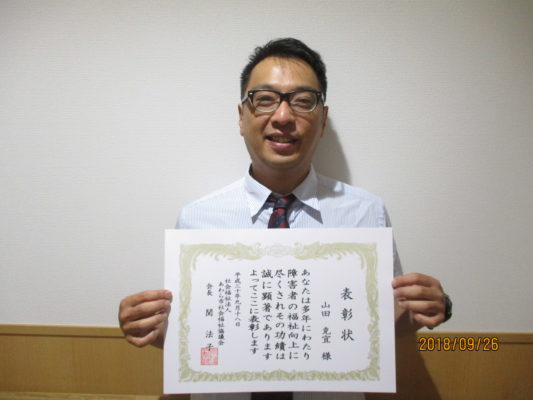 表彰状
山田 克宣 様
あなたは多年にわたり
障害者の福祉向上に
尽くされその功績は
誠に顕著であります
よってここに表彰します
平成三十年九月十八日
社会福祉法人
あわら市社会福祉協議会
会長 関 法子
2018/09/26